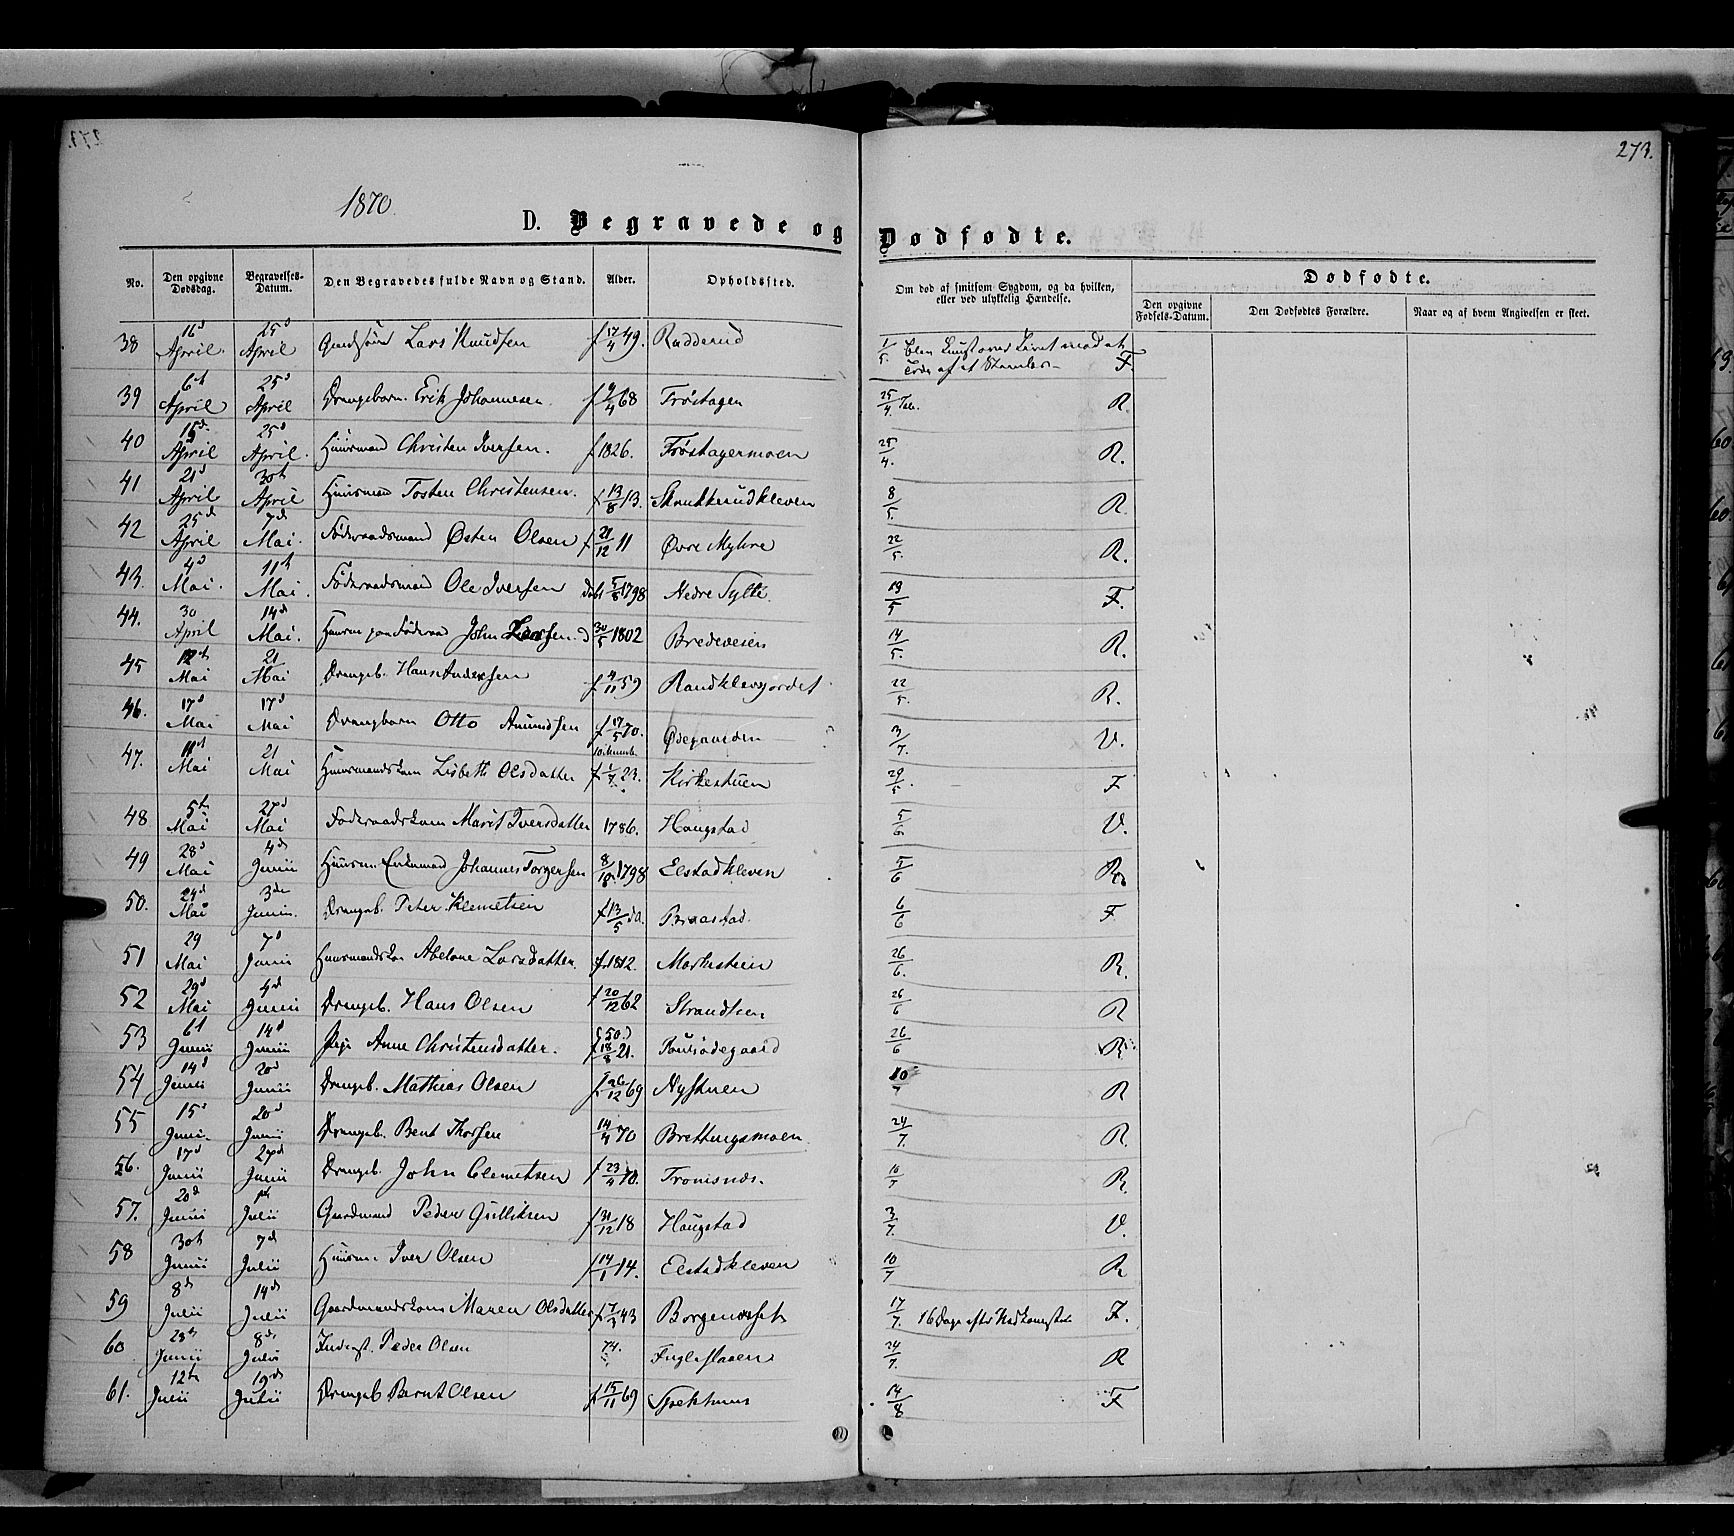 273.
1870.
D. Begravede og Dødfødte.
No. Den opgivne Dødsdag. Begravelses-Datum. Den Begravedes fulde Navn og Stand. Alder. Opholdssted. Om død af smitsom Sygdom, og da hvilken, eller ved ulykkelig Hændelse. Dødfødte.
Den opgivne Fødsels-Datum. Den Dødfødtes Forældre. Naar og af hvem Angivelsen er skeet.
38 16d April. 25d April Gaardsøn Lars Knudsen f 17/4 49. Rudderud 1/5 af et F.
39 6te April 25d April Drengebarn. Erik Johannesen. f 9/4 68 Frøstagen 25/4 R.
40 15d April 25d April. Huusmand Christen Iversen. f 1826. Frøstagermoen 25/4. R.
41 21d April 30te April Huusman Tosten Christensen. f 13/8 13. Skrukkerudkleven 8/5. R.
42 25d April 7d Mai. Føderaadsmand Østen Olsen f 21/12 11 Øvre Myhre 22/5. R.
43. 4d Mai. 11te Mai. Føderaadsmand Ole Iversen døbt 5/8 1798 Nedre Sylte. 19/5 F.
44. 30 April 14d Mai. John Larsen. d 30/5 1802 Bredevesen 14/5. R.
45 12te Mai 21 Mai Drengeb. Hans Andersen f 4/11 59 Randklevgjordet 22/5. R.
46. 17d Mai 17d Mai Drengbarn Otto Amundsen f 17/5 70. Ødegaarden 3/7. V.
47. 11te Mai 21 Mai Huusmandskone Lisbeth Olsdatter f 1/7 23. Kirkestuen 29/5. F
48 5te Mai 27d Mai Føderaadskone Marit Iversdatter 1786. Haugstad 5/6. V.
49 28d Mai 4de Junii Huusm. Enkemand Johannes Torgersen 8/10 1798 Elstadkleven 5/6 R.
50. 24d Mai 3die Junii. Drengeb. Peter Klemetsen f 13/5 Braastad. 6/6 F
51 29 Mai 7d Junii Huusmandskone Abelone Larsdatter. f 1812. Morkestuen 26/6. R.
52 29d Mai 4d Junii Drengeb. Hans Olsen f 20/12 62 Strandtuen 26/6 R
53 6t Junii 14d Junii Pige Anne Christensdatter. (50.) f 18/8 21. Poulsødegaard 26/6 R
54 14d Junii 20d Junii Drengeb. Mathias Olsen f 26/12 69 Nystuen 10/7 R
55 15d Junii. 20d Junii Drengeb. Bent Thorsen 14/4 70 Brettingsmoen 24/7. R.
56. 17d Junii 27d Junii Drengeb. John Clemetsen f 23/4 70. Tromsnes. 10/7 R.
57. 20d Junii 1ste Julii Gaardmand Peder Gulliksen f 31/12 18 Haugstad 3/7. V.
58 30te Junii 7d Julii Huusm. Iver Olsen f 14/1 14. Elstadkleven 10/7 R
59 8de Julii 14de Julii Gaardmandskone Maren Olsdatter f 7/3 43 Borgenæsset 17/7. 16 Dage efter Nedkomsten F.
60 23de Junii 8de Julii Inderst. Peder Olsen 74. Fugleslaaen 24/7. R
61. 12te Julii 19de Julii Drengeb Bernt Olsen f 15/11 69 14/8 F